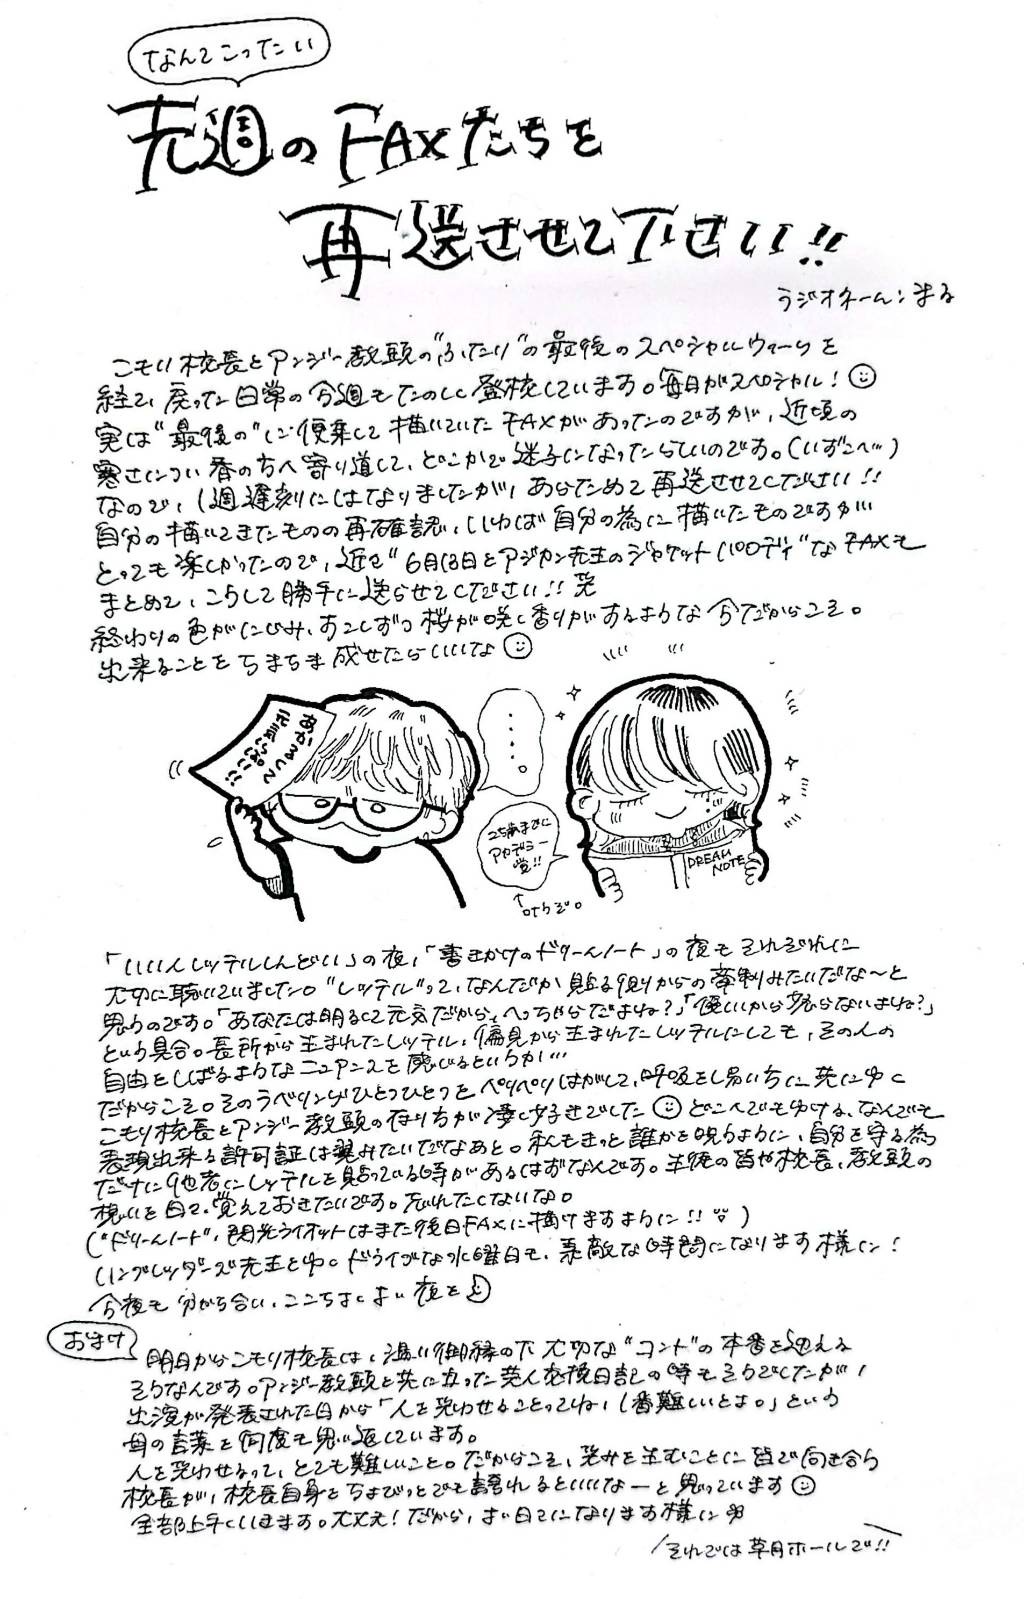 なんてこったい
先週のFAXたちを
再送させて下さい!!
ラジオネーム:まる
こもり校長とアンジー教頭の"ふたり"の最後のスペシャルウィークを
経て、戻った日常の今週もたのしく登校しています。毎日がスペシャル!
実は"最後の"に便乗して描いていたFAXがあったのですが、近頃の
寒さについ春の方へ寄り道して、どこかで迷子になったらしいのです。(いずこへ…)
なので、1週遅刻にはなりましたが、あらためて再送させてください!!
自分の描いてきたものの再確認、いわば自分の為に描いたものですが…
とっても楽しかったので、近々"6月13日とアジカン先生のジャケットパロディ"なFAXも
まとめて、こうして勝手に送らせてください!!笑
終わりの色がにじみ、すこしずつ桜が咲く香りがするような今だからこそ。
出来ることをちまちま成せたらいいな
おやすみして
……。
25歳までに
アカデミー
賞!!
DREAM
NOTE
「いい人レッテルしんどい」の夜、「書きかけのドリームノート」の夜もそれぞれに
大切に聴いていました。"レッテル"って、なんだか貼る側からの牽制みたいだな〜と
思うのです。「あなたは明るくて元気だから、へっちゃらだよね?」「優しいから怒らないよね?」
という具合。長所から生まれたレッテル、偏見から生まれたレッテルにしても、その人の
自由をしばるようなニュアンスを感じるというか…
だからこそ。そのラベリングひとつひとつをペリペリはがして、呼吸をし易い方に先にゆく
こもり校長とアンジー教頭の在り方が凄く好きでした どこへでもゆける、なんでも
表現出来る許可証は翼みたいだなあと。私もきっと誰かを呪うように、自分を守る為
だけに他者にレッテルを貼っている時があるはずなんです。生徒の皆や校長、教頭の
想いを目で、覚えておきたいです。忘れたくないな。
("ドリームノート"、閃光ライオットはまた後日FAXに描けますように!!)
ハンブレッダーズ先生とゆくドライブな水曜日も、素敵な時間になります様に!
今夜も分かち合い、ここちよい夜を
おまけ
明日からこもり校長は、温い御縁の下大切な"コント"の本番を迎える
そうなんです。アンジー教頭と共に立った芸人交換日記の時もそうでしたが、
出演が発表された日から「人を笑わせることってね、1番難しいとよ。」という
母の言葉を何度も思い返しています。
人を笑わせるって、とても難しいこと。だからこそ、笑みを生むことに皆で向き合う
校長が、校長自身をちょびっとでも誇れるといいなーと思っています
全部上手くいきます。大丈夫!だから、よい日々になります様に
それでは草月ホールで!!